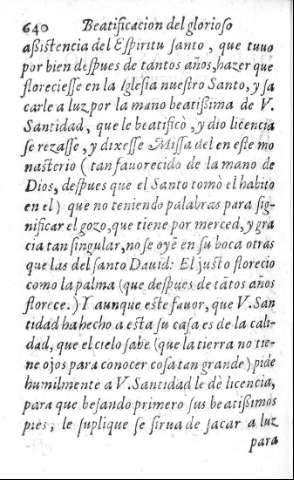 640 Beatificacion del glorioso
aßistencia del Espiritu santo, que tuuo
por bien despues de tantos años, hazer que
floreciesse en la Iglesia nuestro Santo, y sa
carle a luz por la mano beatißima de V.
Santidad, que le beatificò, y dio licencia
se rezasse, y dixesse Missa del en este mo
nasterio (tan fauorecido de la mano de
Dios, despues que el Santo tomò el habito
en el) que no teniendo palabras para sig-
nificar el gozo, que tiene por merced, y gra
cia tan singular, no se oyē en su boca otras
que las del santo Dauid: El justo florecio
como la palma (que despues de tātos años
florece.) Y aunque este fauor, que V. San
tidad ha hecho a esta su casa es de la cali-
dad, que el cielo sabe (que la tierra no tie-
ne ojos para conocer cosa tan grande) pide
humilmente a V. Santidad le dè licencia,
para que besando primero sus beatißimos
pies, le suplique se sirua de sacar a luz
para